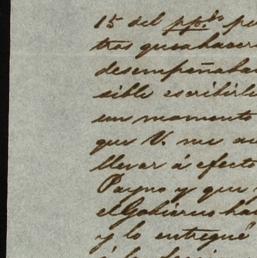 15 del pp.do
tras que a hacer
desempeñaba
sible escribirle
un momento
que V. me
llevar á efecto
Payno y que
el Gobierno ha
y lo entregué